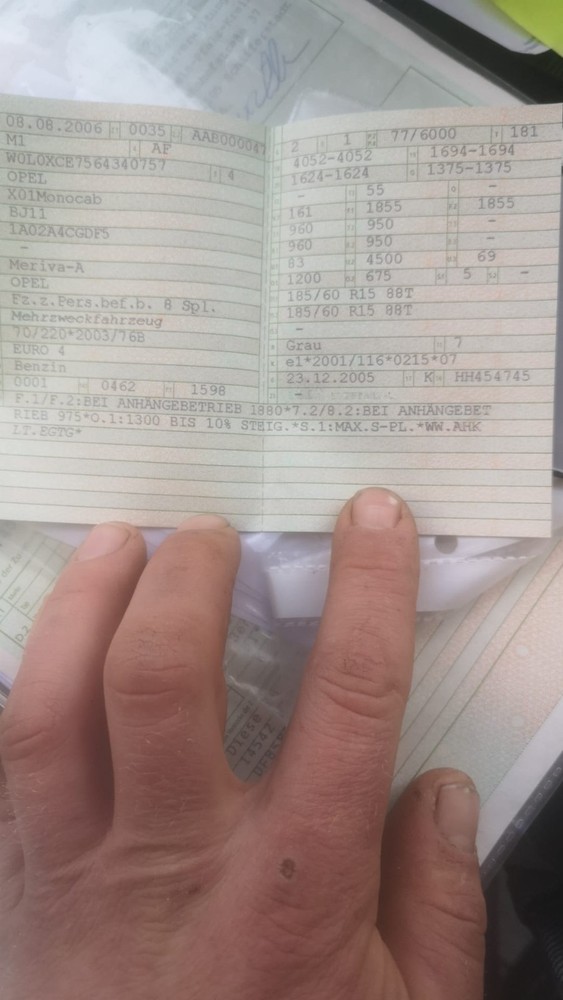 08.08.2006 0035 AAB000047
M1 AF
W0L0XCE7564340757 4
OPEL
X01Monocab
BJ11
1A02A4CGDF5
-
Meriva-A
OPEL
Fz.z.Pers.bef.b. 8 Spl.
Mehrzweckfahrzeug
70/220*2003/76B
EURO 4
Benzin
0001 0462 1598
2 1 77/6000 181
4052-4052 1694-1694
1624-1624 1375-1375
- 55 -
161 1855 1855
960 950 -
960 950 -
83 4500 69
1200 675 5 -
185/60 R15 88T
185/60 R15 88T
-
Grau 7
e1*2001/116*0215*07
23.12.2005 K HH454745
F.1/F.2:BEI ANHÄNGEBETRIEB 1880*7.2/8.2:BEI ANHÄNGEBET
RIEB 975*O.1:1300 BIS 10% STEIG.*S.1:MAX.S-PL.*WW.AHK
LT.EGTG*